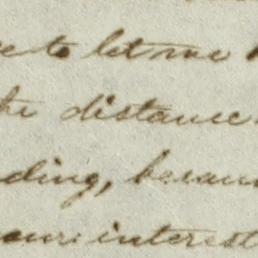 to let me
the distance
ding, becau
our interest